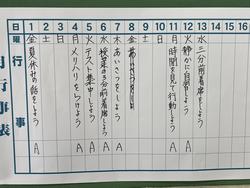 日 1 2 3 4 5 6 7 8 9 10 11 12 13 14 15 16
曜 金 土 日 月 火 水 木 金 土 日 月 火 水
行事
夏休みの話をしよう
メリハリをつけよう
テスト集中しよう
授業の3分前着席をしよう
あいさつをしよう
時間を見て行動しよう
静かに自習をしよう
三分前着席をしよう
A A A A A A A
月行事表